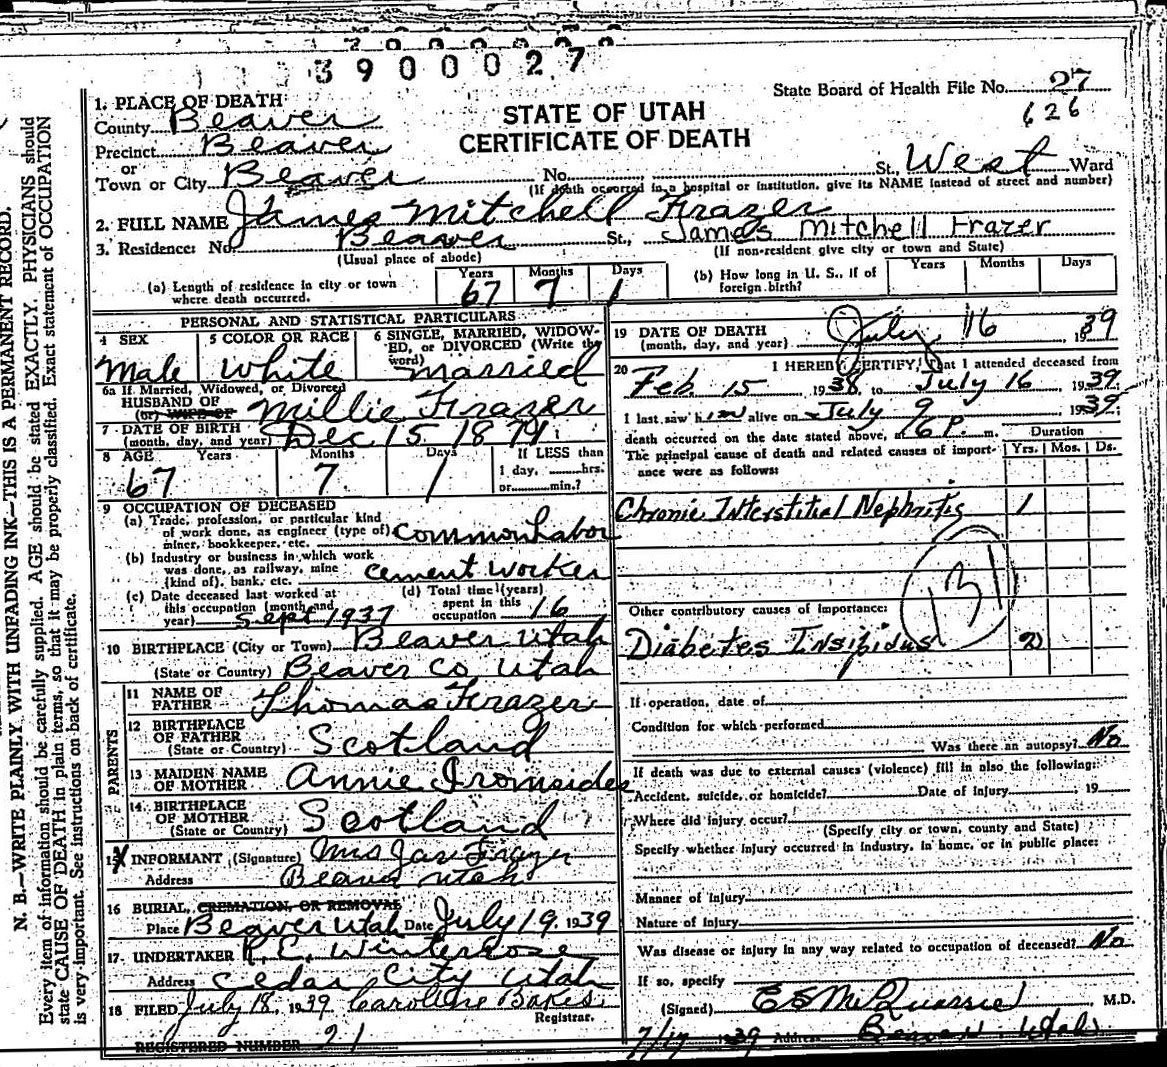 3900027
State Board of Health File No. 27
626
STATE OF UTAH
CERTIFICATE OF DEATH
1. PLACE OF DEATH
County Beaver
Precinct Beaver
or
Town or City Beaver No. St., West Ward
(If death occurred in a hospital or institution, give its NAME instead of street and number)
2. FULL NAME James Mitchell Frazer
3. Residence: No. Beaver St., James Mitchell Frazer
(Usual place of abode) (If non-resident give city or town and State)
(a) Length of residence in city or town where death occurred. Years 67 Months 7 Days 1
(b) How long in U. S., if of foreign birth? Years Months Days
PERSONAL AND STATISTICAL PARTICULARS
4 SEX Male
5 COLOR OR RACE White
6 SINGLE, MARRIED, WIDOWED, or DIVORCED (Write the word) married
6a If Married, Widowed, or Divorced
HUSBAND OF
(or) WIFE OF Millie Frazer
7 DATE OF BIRTH
(month, day, and year) Dec 15 1871
8 AGE Years 67 Months 7 Days 1
If LESS than
1 day, hrs.
or min.?
9 OCCUPATION OF DECEASED
(a) Trade, profession, or particular kind
of work done, as engineer (type of)
miner, bookkeeper, etc. Common Labor
(b) Industry or business in which work
was done, as railway, mine
(kind of), bank, etc. Cement Worker
(c) Date deceased last worked at
this occupation (month and
year) Sept 1937
(d) Total time (years)
spent in this
occupation 16
10 BIRTHPLACE (City or Town) Beaver Utah
(State or Country) Beaver Co Utah
PARENTS
11 NAME OF FATHER Thomas Frazer
12 BIRTHPLACE OF FATHER
(State or Country) Scotland
13 MAIDEN NAME OF MOTHER Annie Ironsides
14 BIRTHPLACE OF MOTHER
(State or Country) Scotland
15 X INFORMANT (Signature) Mrs Jas Frazer
Address Beaver Utah
16 BURIAL, CREMATION, OR REMOVAL
Place Beaver Utah Date July 19, 1939
17. UNDERTAKER Winterrose
Address Cedar City Utah
18 FILED July 18, 1939 Caroline Bakes
Registrar.
REGISTERED NUMBER 21
19 DATE OF DEATH
(month, day, and year) July 16 1939
20 I HEREBY CERTIFY, That I attended deceased from
Feb. 15 1938 to July 16, 1939
I last saw him alive on July 9, 1939
death occurred on the date stated above, at 6 P. m.
The principal cause of death and related causes of importance were as follows:
Duration
Yrs. Mos. Ds.
Chronic Interstitial Nephritis 1
131
Other contributory causes of importance:
Diabetes Insipidus 2
If operation, date of
Condition for which performed
Was there an autopsy? No
If death was due to external causes (violence) fill in also the following:
Accident, suicide, or homicide? Date of injury , 19
Where did injury occur?
(Specify city or town, county and State)
Specify whether injury occurred in industry, in home, or in public place:
Manner of injury
Nature of injury
Was disease or injury in any way related to occupation of deceased? No
If so, specify
(Signed) M.D.
7/17 1939 Address Beaver Utah
N. B.—WRITE PLAINLY WITH UNFADING INK—THIS IS A PERMANENT RECORD.
Every item of information should be carefully supplied. AGE should be stated EXACTLY. PHYSICIANS should
state CAUSE OF DEATH in plain terms, so that it may be properly classified. Exact statement of OCCUPATION
is very important. See instructions on back of certificate.